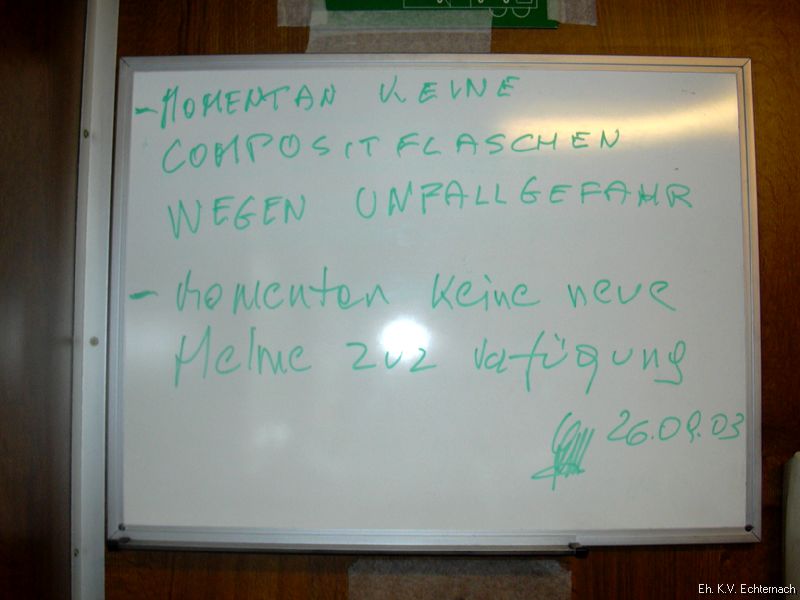 - MOMENTAN KEINE
COMPOSITFLASCHEN
WEGEN UNFALLGEFAHR
- Momentan Keine neue
Helme zuz Vafügung
26.09.03
Eh. K.V. Echternach